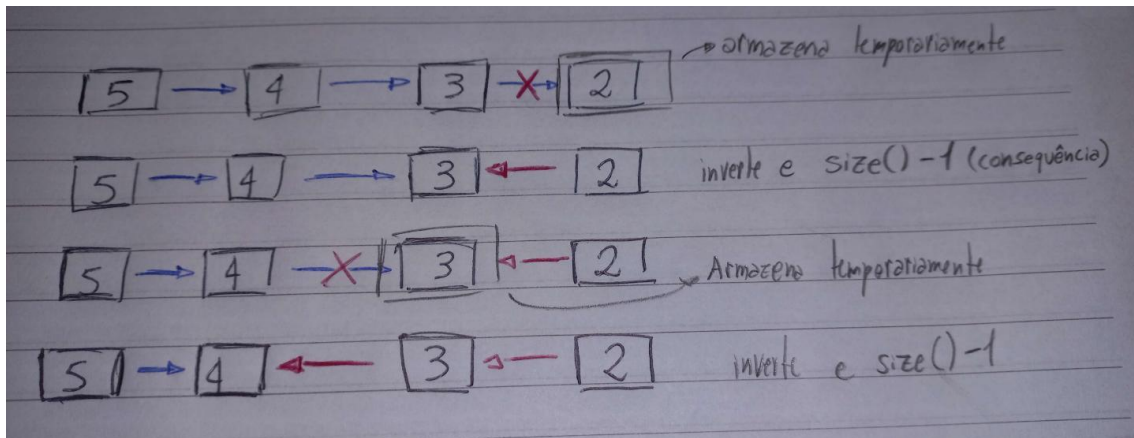 5 4 3 2 armazena temporariamente
5 4 3 2 inverte e size()-1 (consequência)
5 4 3 2 Armazena temporariamente
5 4 3 2 inverte e size()-1